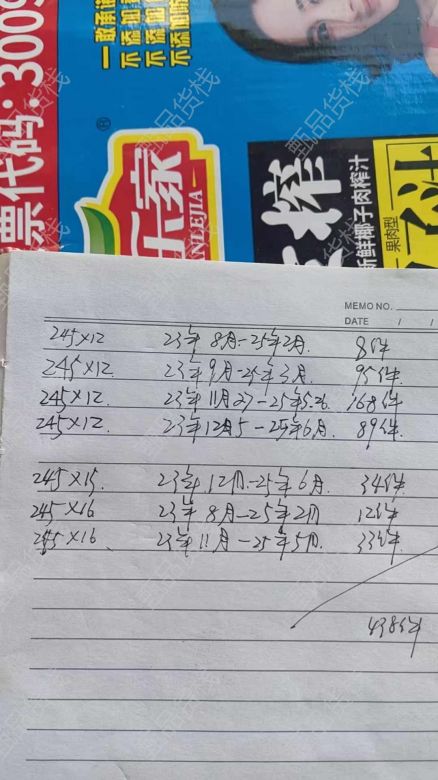 票代码:3009
不添加
不添加
不添加
®
榨
鲜椰子肉榨汁
果肉型
汁
甄品货栈
MEMO NO.
DATE / /
245×12 23年8月-25年2月. 8件
245×12. 23年9月-25年3月. 95件.
245×12. 23年11月27-25年5.26. 168件
245×12. 23年12月5-25年6月. 89件.
245×15. 23年12月-25年6月. 34件
245×16 23年8月-25年2月 12件
245×16 23年11月-25年5月. 33件
438件